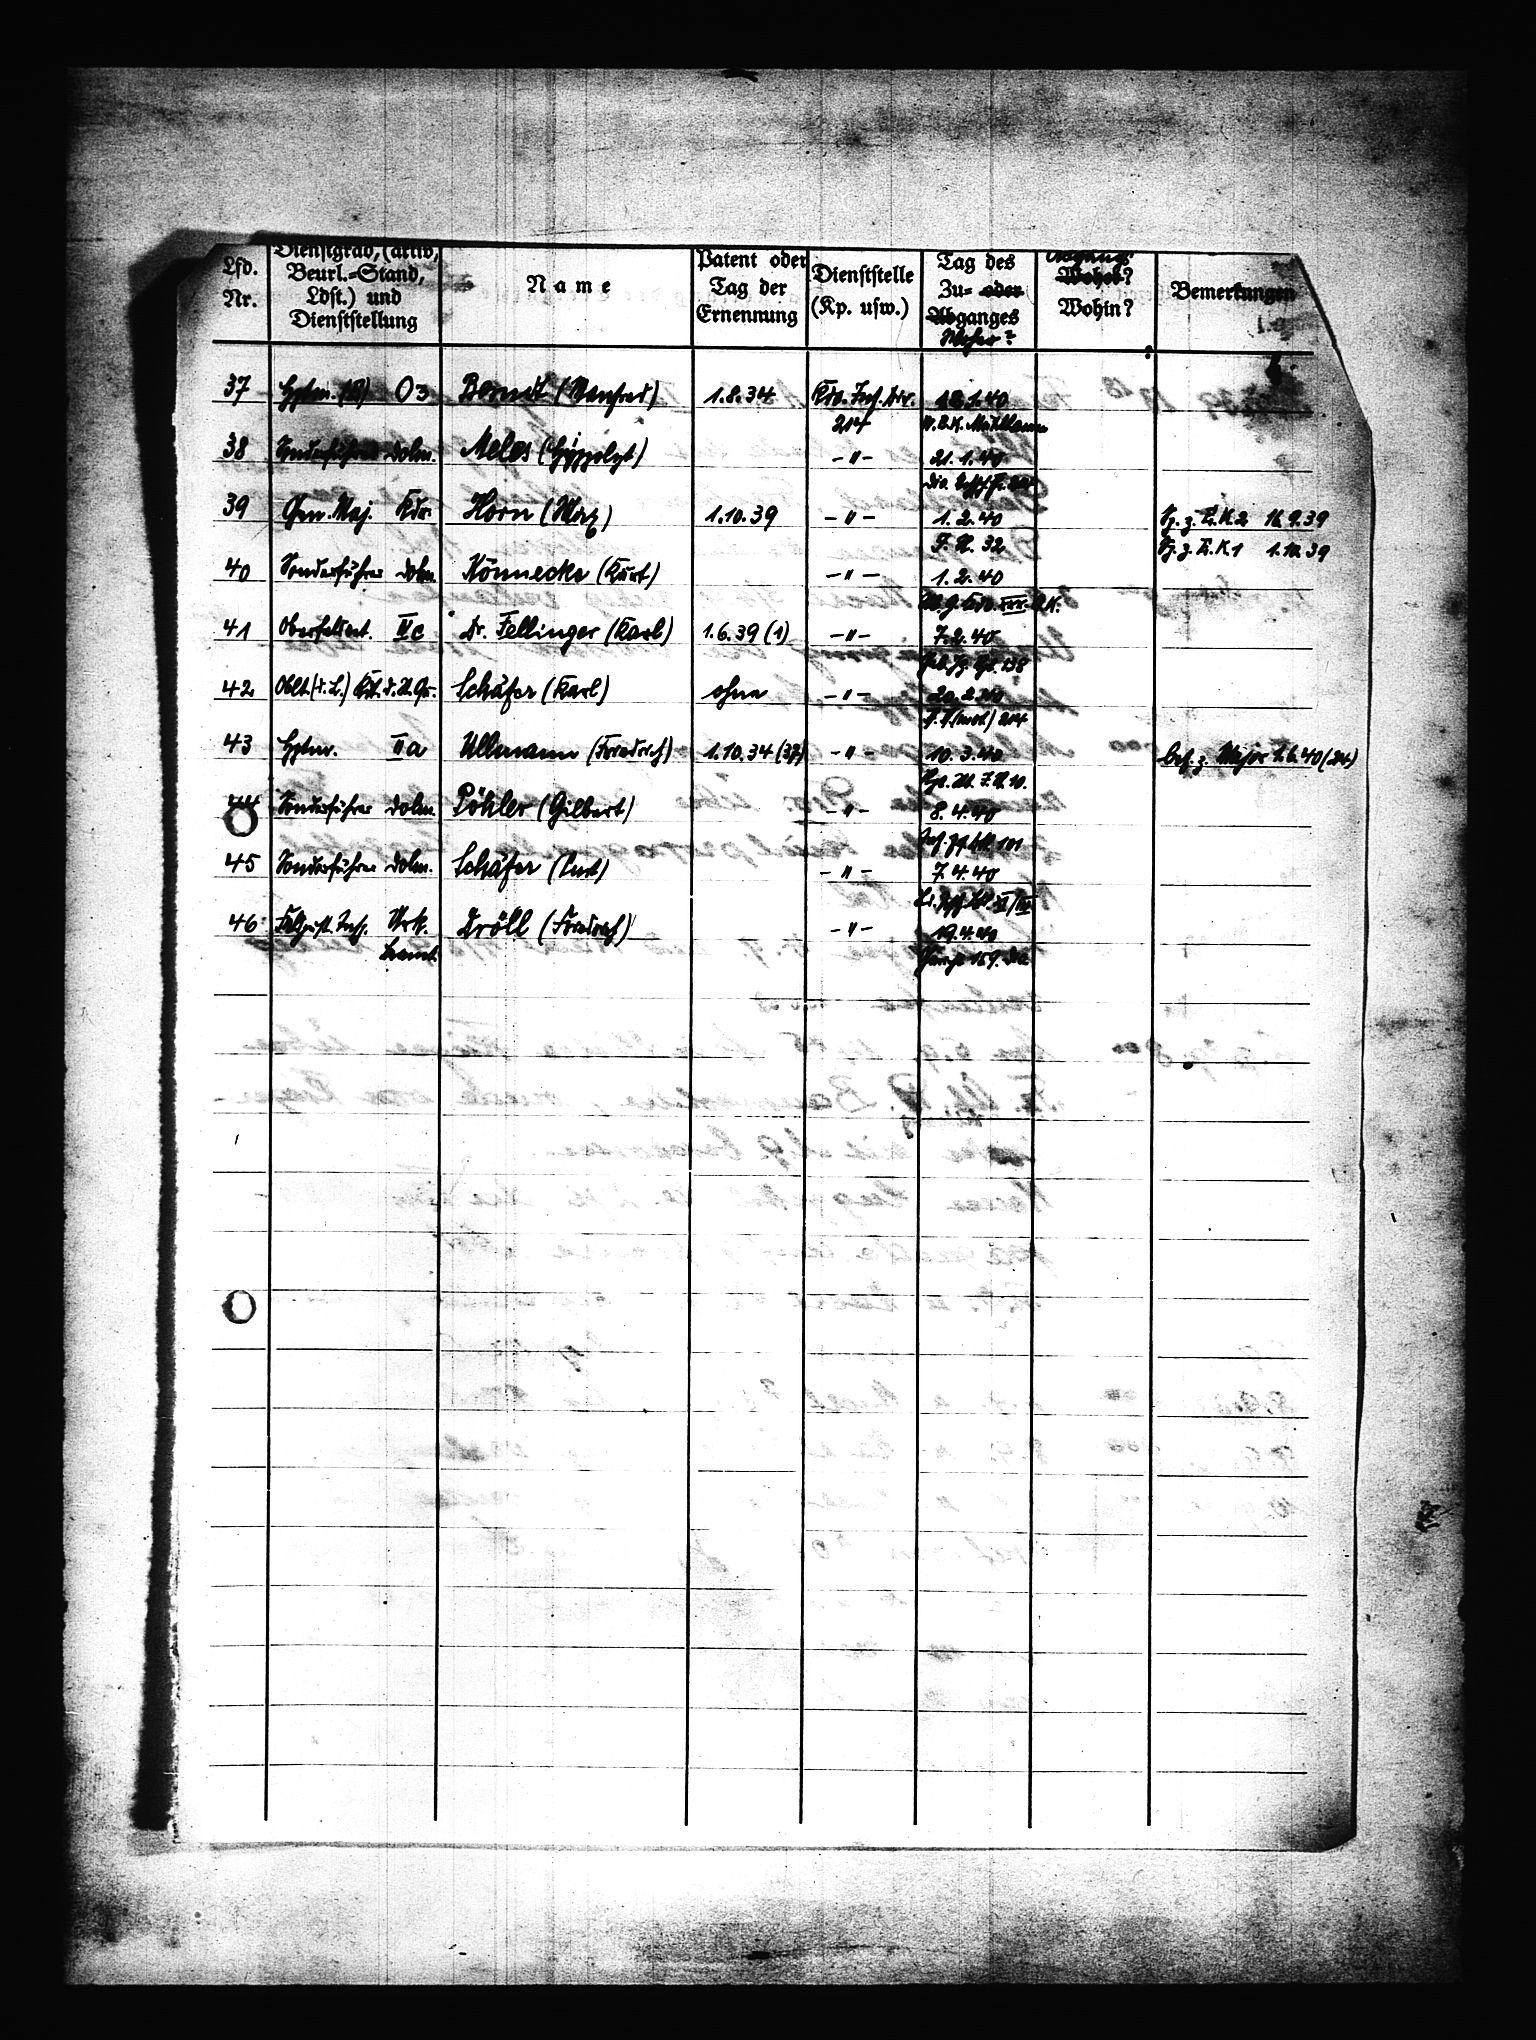 Lfd. Nr. | Dienstgrad, (aktiv, Beurl.-Stand, Ldst.) und Dienststellung | Name | Patent oder Tag der Ernennung | Dienststelle (Kp. usw.) | Tag des Zu- oder Abganges Woher? | Abgang Woher? Wohin? | Bemerkungen
37 Hptm. (R) O3 Berndt (Manfred) 1.8.34 Kdo. Inf. Div. 18.1.40
214
38 Sonderführer Dolm. Meles (Hippolyt) -"- 21.1.40
39 Gen. Maj. Kdr. Horn (Max) 1.10.39 -"- 1.2.40 Sp. z. E.K.2 16.9.39
J.R. 32 Sp. z. E.K.1 1.10.39
40 Sonderführer Dolm. Könnecke (Kurt) -"- 1.2.40
41 Oberfeldvet. IVc Dr. Fellinger (Karl) 1.6.39 (1) -"- 7.2.40
Geb. Jg. Rgt. 138
42 Oblt. (d. L.) Kdt. d. St. Qu. Schäfer (Karl) ohne -"- 20.2.40
43 Hptm. IIa Ullmann (Friedrich) 1.10.34 (37) -"- 10.3.40 bef. z. Major 1.6.40 (24)
44 Sonderführer Dolm. Pöhler (Gilbert) -"- 8.4.40
45 Sonderführer Dolm. Schäfer (Curt) -"- 7.4.40
46 Dröll (Friedrich) -"- 19.4.40